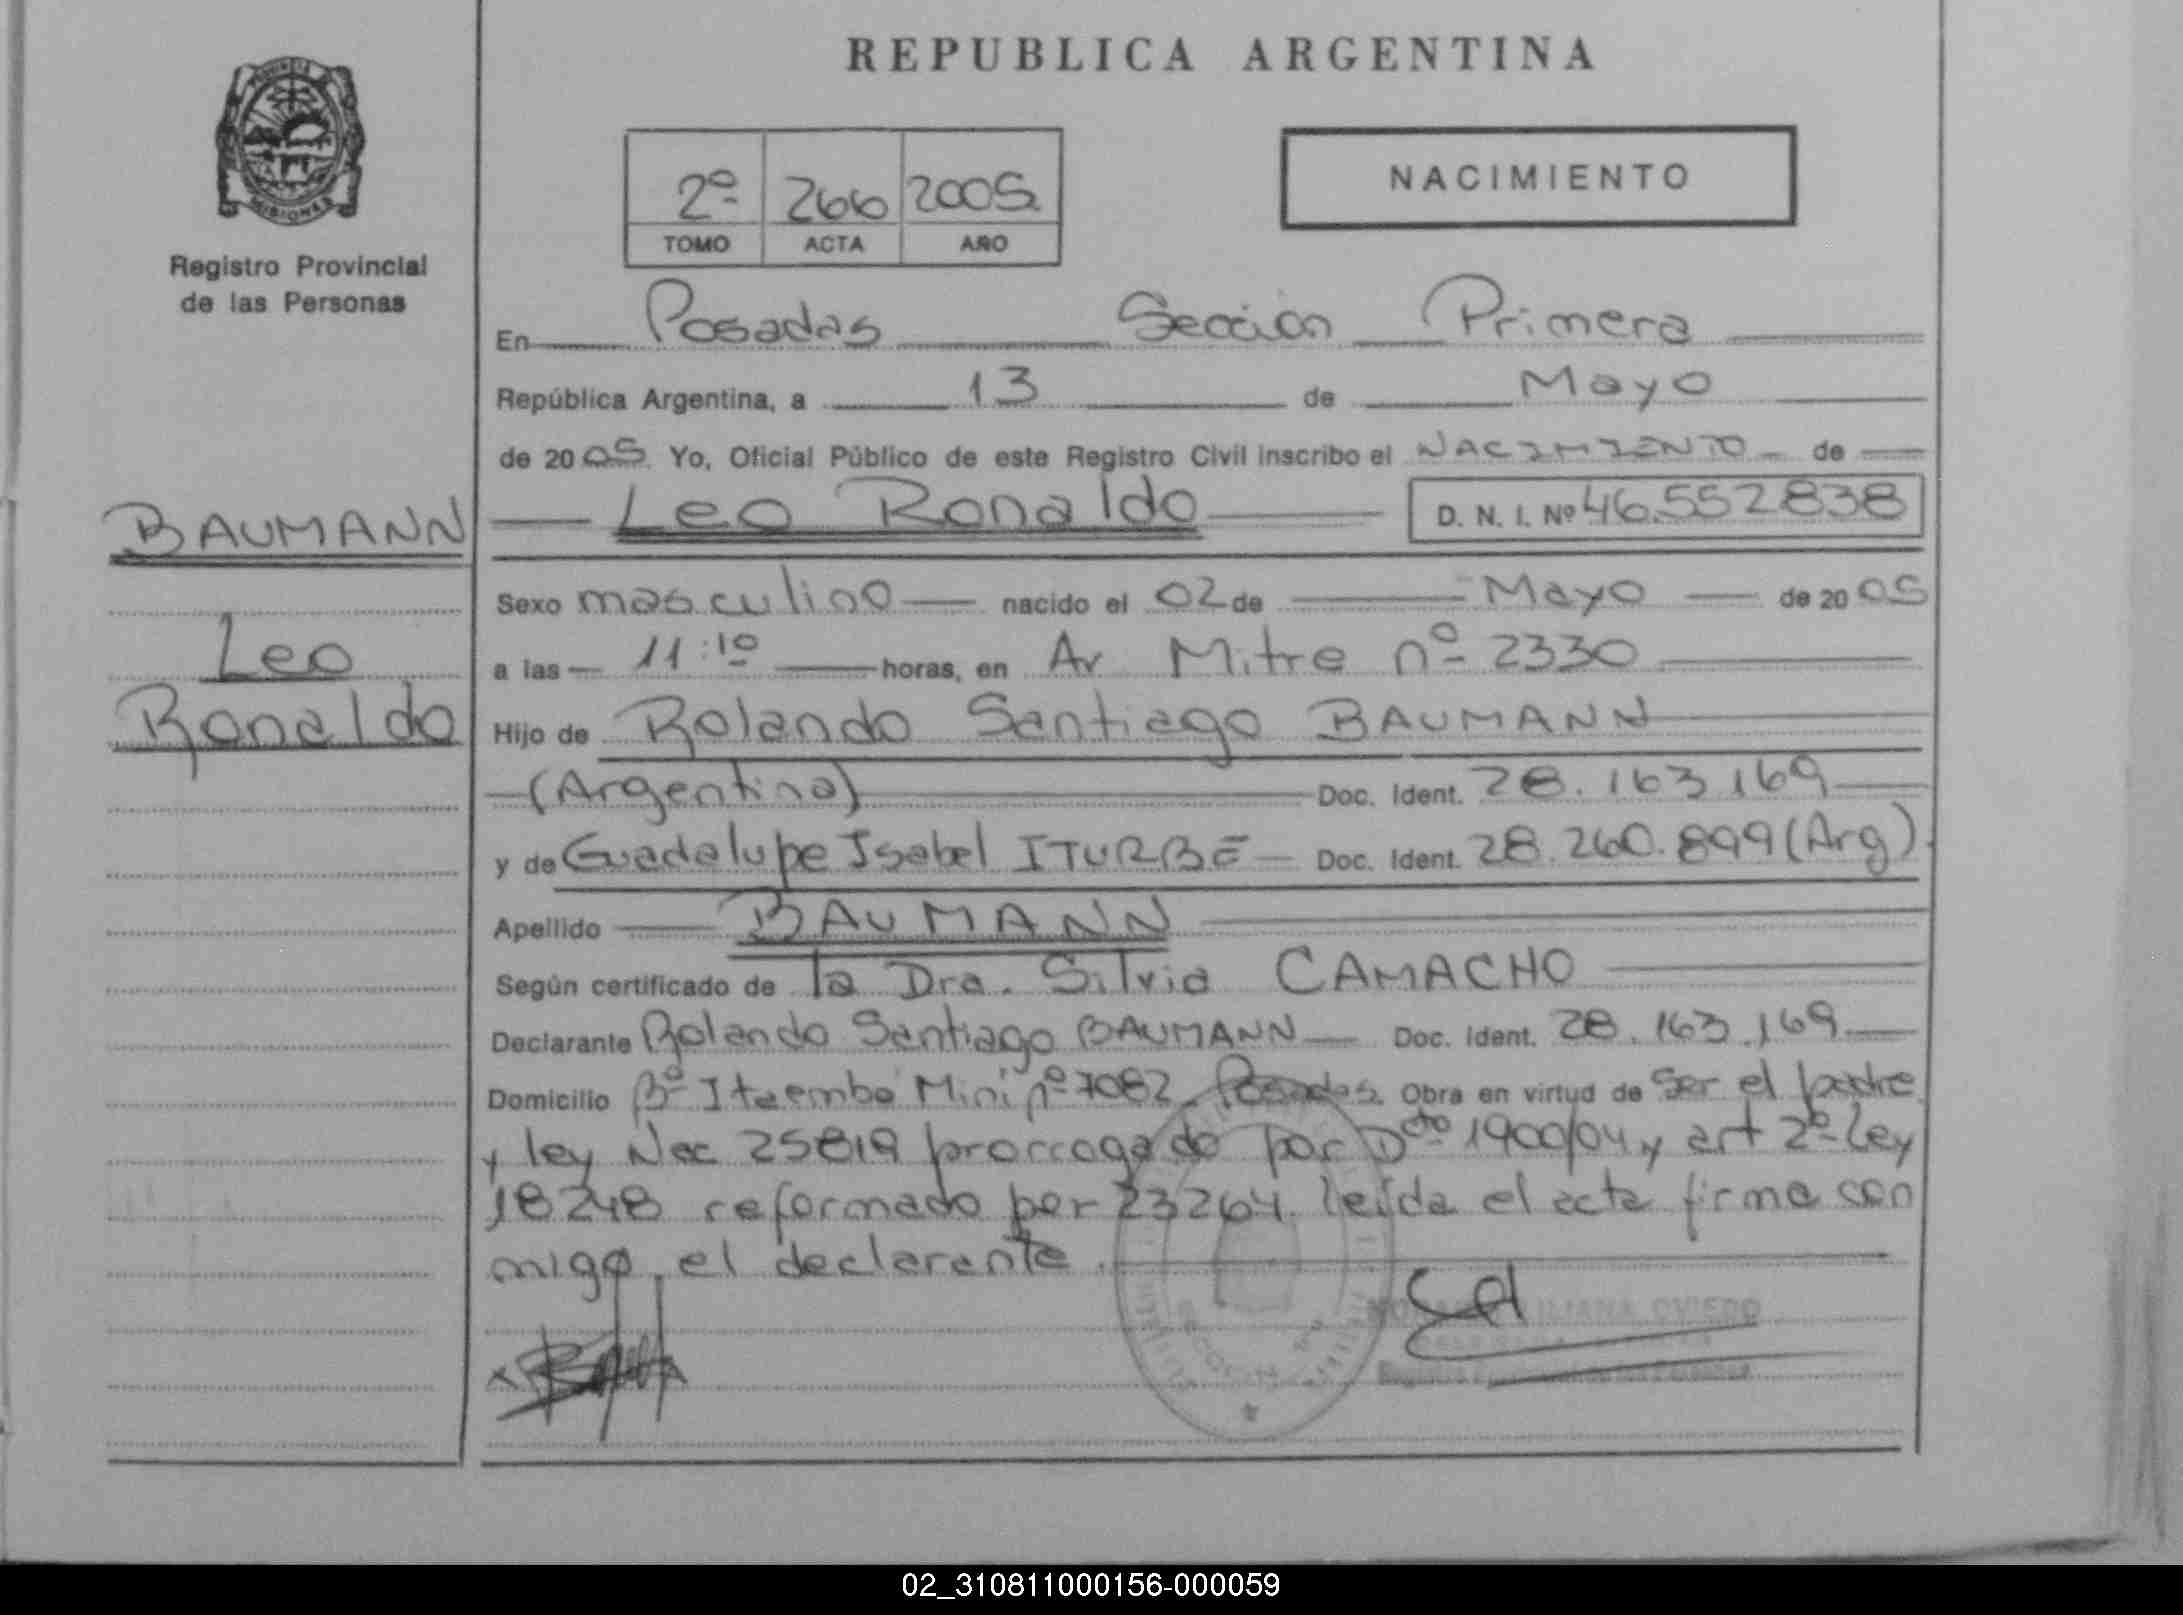 REPUBLICA ARGENTINA
PROVINCIA
MISIONES
Registro Provincial
de las Personas
2º 266 2005.
TOMO ACTA AÑO
NACIMIENTO
En Posadas Sección Primera
República Argentina, a 13 de Mayo
de 2005 Yo, Oficial Público de este Registro Civil inscribo el NACIMIENTO de
BAUMANN
Leo
Ronaldo
Leo Ronaldo D. N. I. Nº 46.552838
Sexo masculino nacido el 02 de Mayo de 2005
a las 11:10 horas, en Av Mitre nº 2330
Hijo de Rolando Santiago BAUMANN
(Argentina) Doc. Ident. 28.163.169
y de Guadalupe Isabel ITURBE Doc. Ident. 28.260.899 (Arg)
Apellido BAUMANN
Según certificado de la Dra. Silvia CAMACHO
Declarante Rolando Santiago BAUMANN Doc. Ident. 28.163.169
Domicilio Bº Itaembe Mini nº 7082 Posadas. Obra en virtud de Ser el padre
y ley Nac 25819 prorrogado por Dcto 1900/04 y art 2º Ley
18248 reformado por 23264. leída el acta firma con
migo el declarante.
LILIANA OVIEDO
02_310811000156-000059